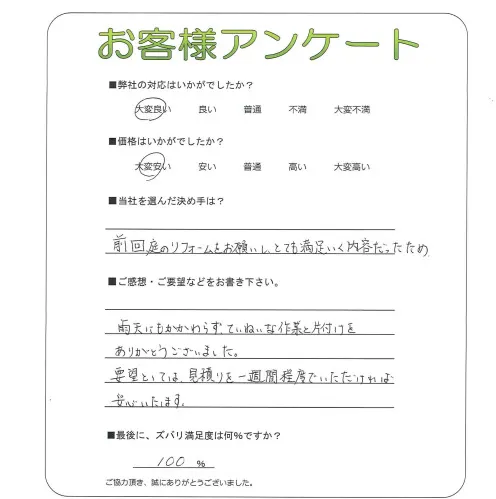 お客様アンケート
■弊社の対応はいかがでしたか？
大変良い 良い 普通 不満 大変不満
■価格はいかがでしたか？
大変安い 安い 普通 高い 大変高い
■当社を選んだ決め手は？
前回庭のリフォームをお願いし、とても満足いく内容だったため
■ご感想・ご要望などをお書き下さい。
雨天にもかかわらず、ていねいな作業と片付けを
ありがとうございました。
要望としては、見積りを一週間程度でいただければ
安心いたします。
■最後に、ズバリ満足度は何％ですか？
100 %
ご協力頂き、誠にありがとうございました。